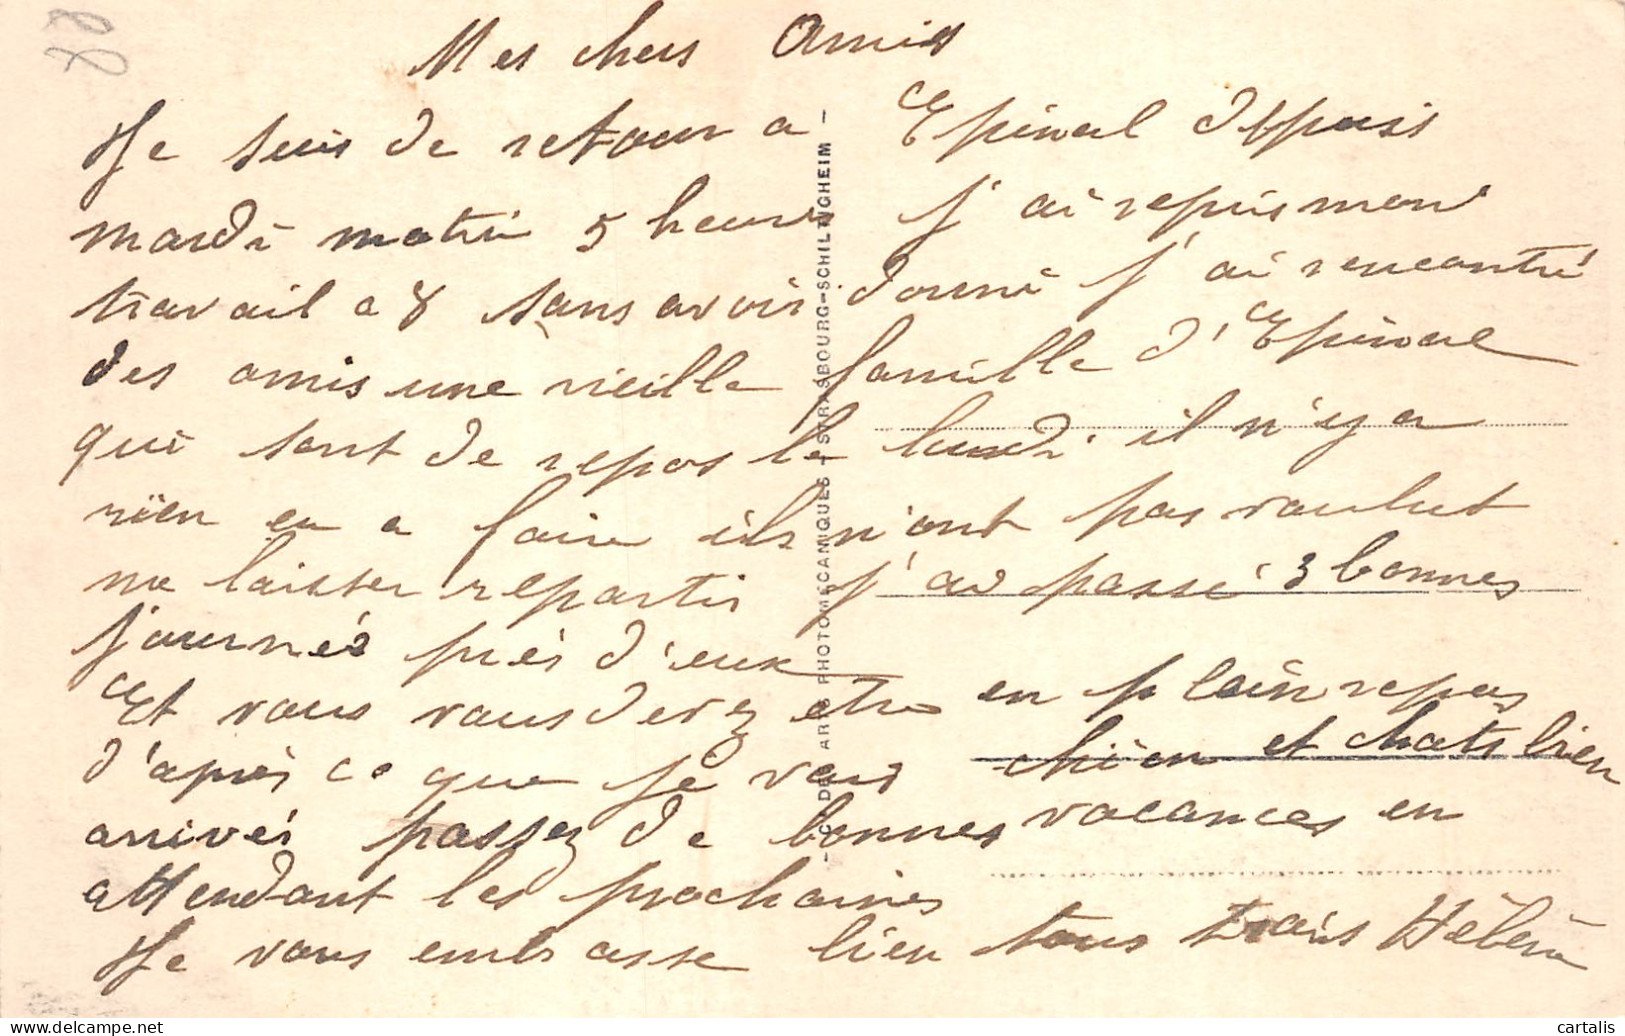 Mes chers Amis
Je suis de retour a Epinal depuis
mardi matin 5 heures j'ai repris mon
travail a 8 sans avoir dormi j'ai rencontré
des amis une vieille famille d'Epinal
qui sont de repos le lundi il n'y a
rien eu a faire ils n'ont pas voulut
me laisser repartir j'ai passé 3 bonnes
journés près d'eux
Et vous vous devez etre en plein repos
d'après ce que je vois chien et chats bien
arrivés passez de bonnes vacances en
attendant les prochaines
Je vous embrasse bien tous trois Hélène
DE ARTS PHOTOMÉCANIQUES - STRASBOURG-SCHILTIGHEIM -
20
cartalis
www.delcampe.net